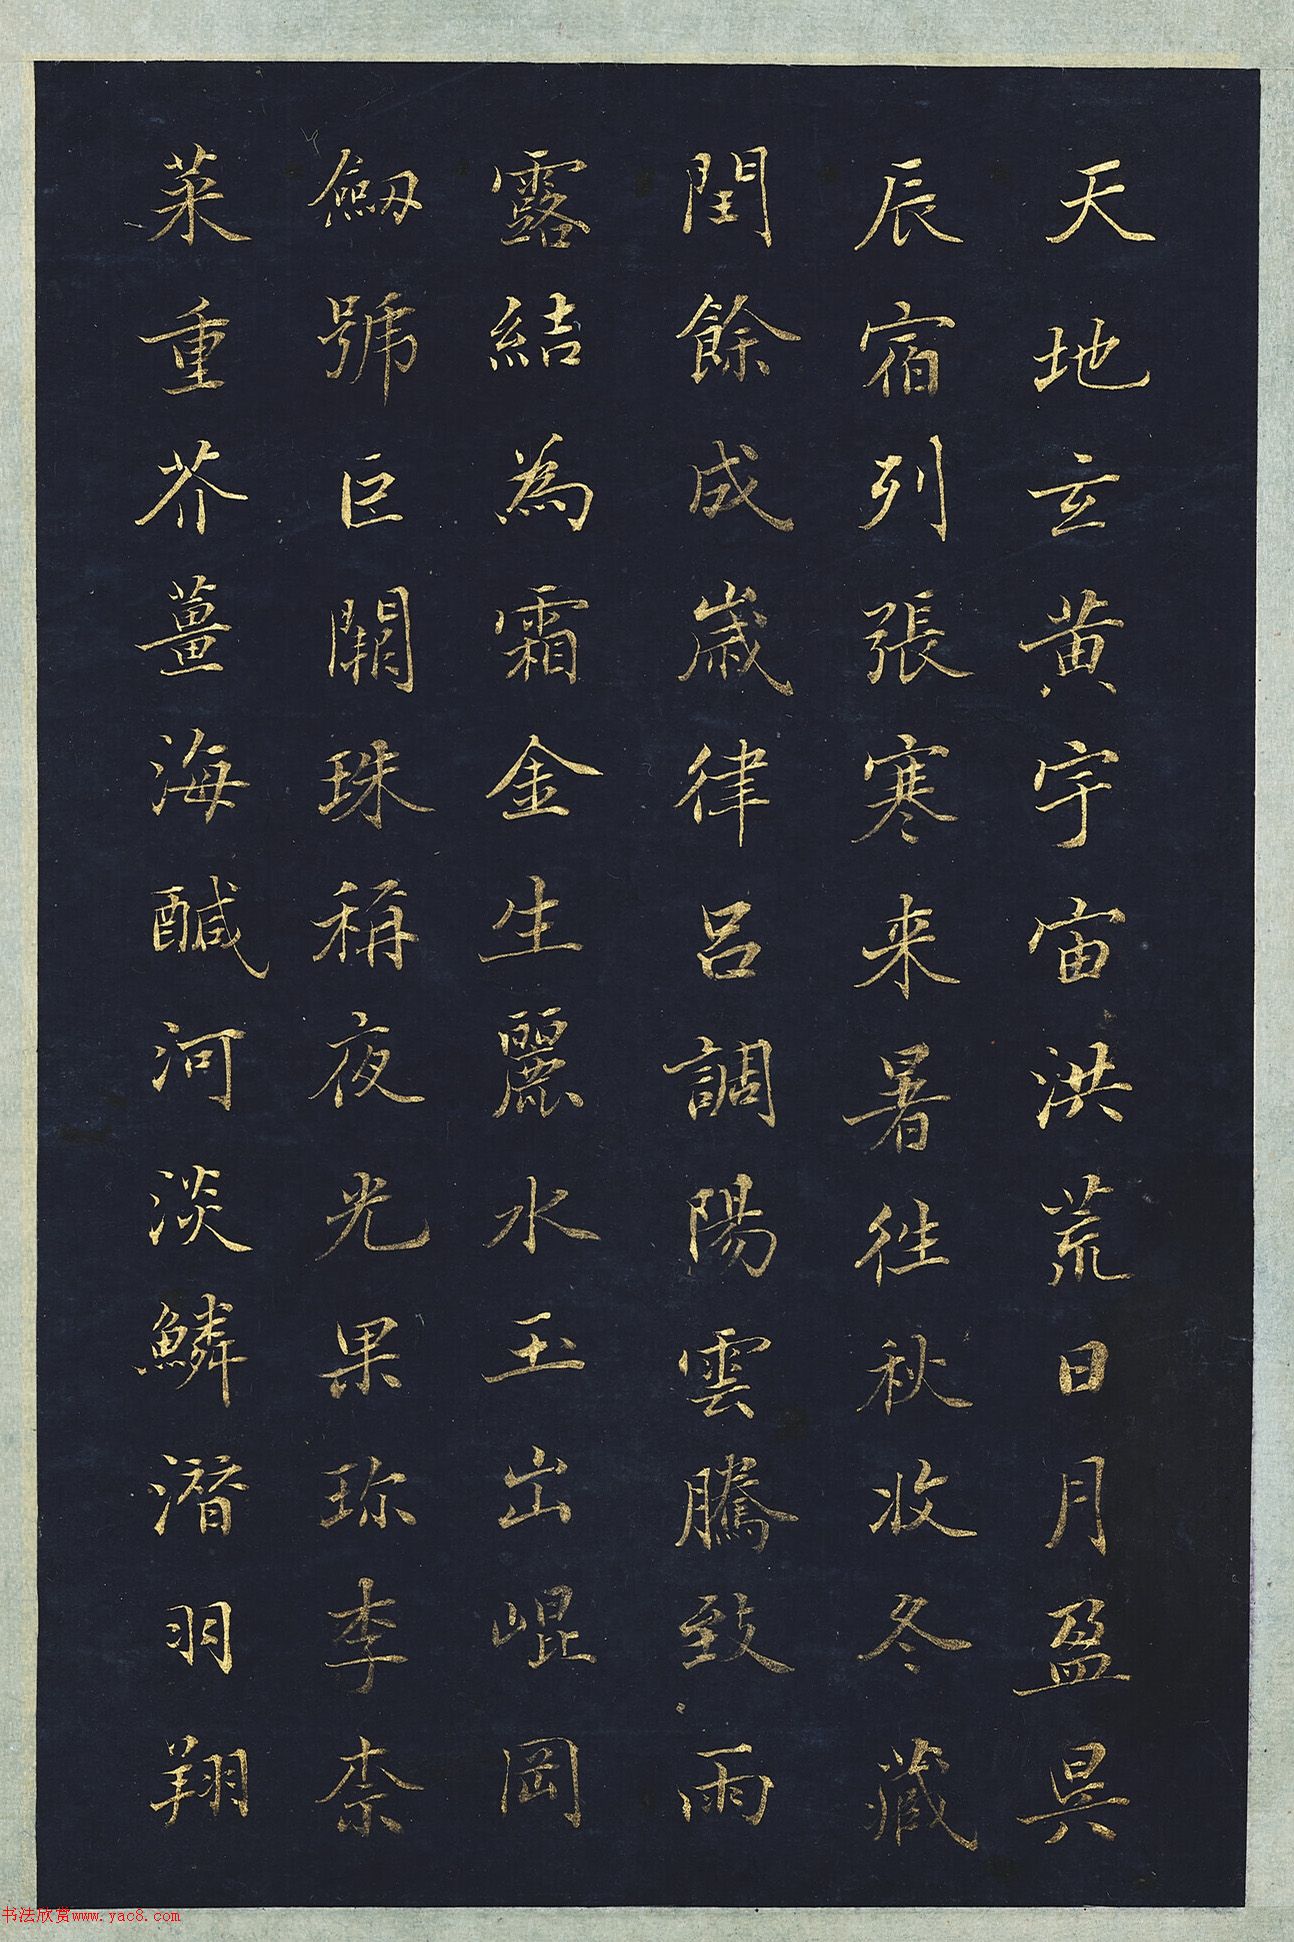 天地玄黃宇宙洪荒日月盈昃
辰宿列張寒来暑徃秋收冬藏
閏餘成歲律呂調陽雲騰致雨
露結為霜金生麗水玉出崐岡
劒號巨闕珠稱夜光果珎李柰
菜重芥薑海醎河淡鱗潛羽翔
书法欣赏www.yac8.com